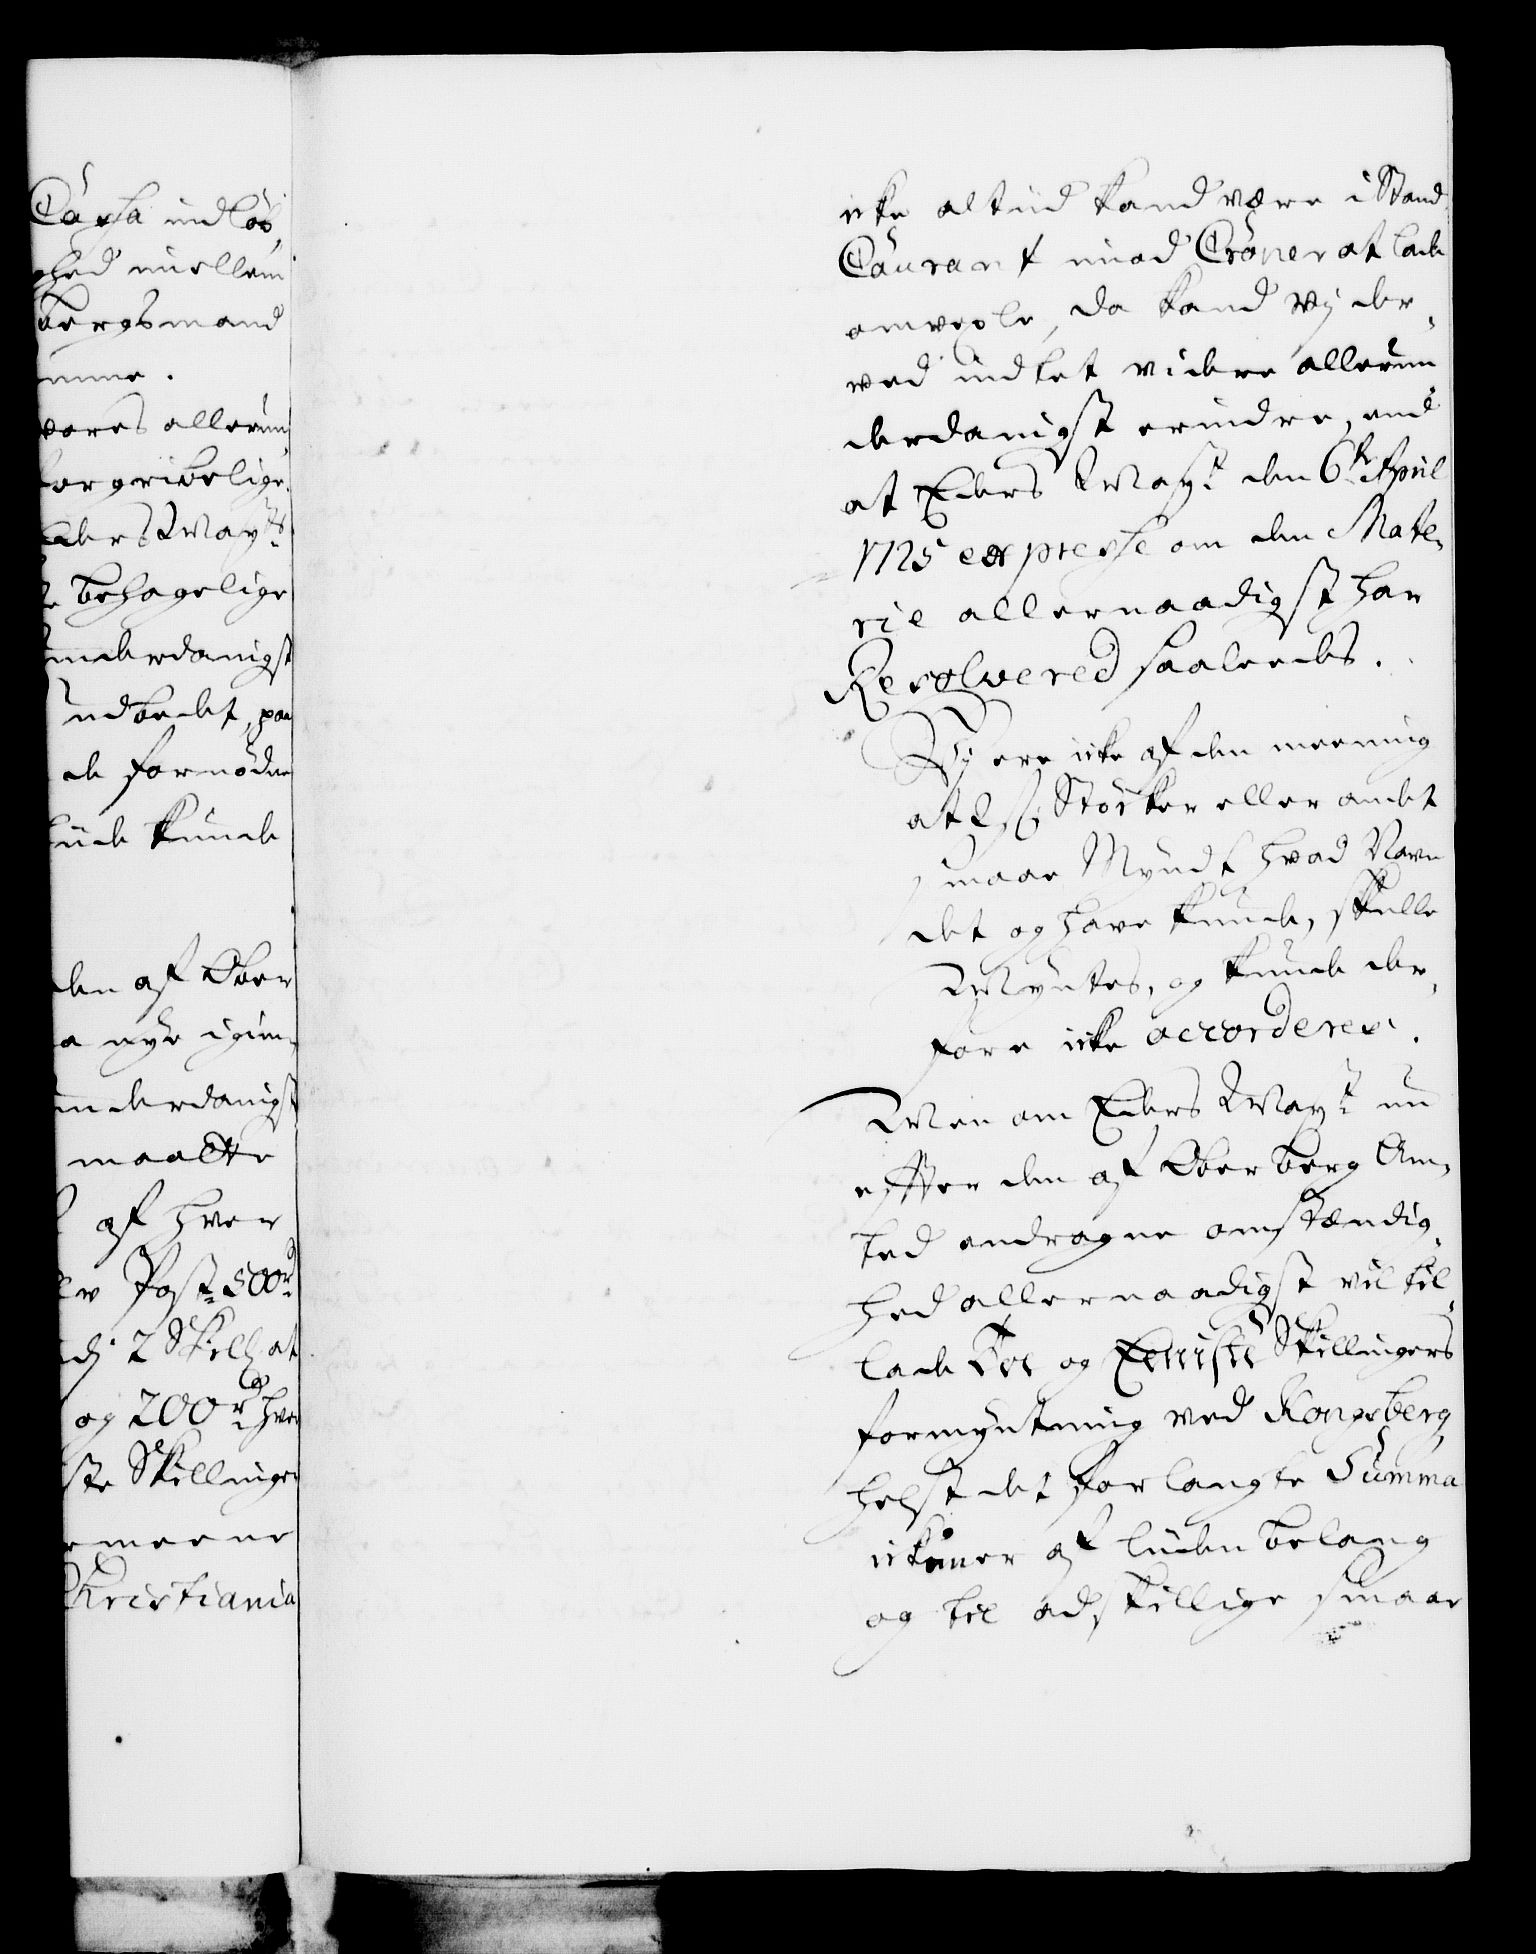 Cassa indløb,
ghed imellem
bergsmand
mme.
vores allerun,
forgribelige
Eders May.ts
behagelige
underdanigst
udbedet, paa
de formodne
tiid kunde
den af Ober
a nye igien,
underdanigst
maatte
af hver
Post 500 rd
2 Skill. at
og 200 rd hver
ste Skillinger
meene
Christiania
icke altiid kand være i Stand
Courant imod Croner at lade
omvexle, da kand Vj der,
ved indtet videre allerun,
derdanigst erindre, end
at Eders May.t den 6.te April
1725 expresse om den Mate,
rie allernaadigst har
Resolvered saaledes.
Vj ere icke af den meening
at 2 s. Støcker eller andet
smaae Myndt hvad Navn
det og have kunde, skulle
Myntes, og kunde der,
fore icke accorderes.
Men om Eders May.t nu
effter den af Ober Berg Am,
ted andragne omstændig,
hed allernaadigst vil til,
lade Toe og Eeniste Skillingers
formyntning ved Kongsberg,
helst det forlangte Summa
icke er af liden belang
og til adskillige smaae